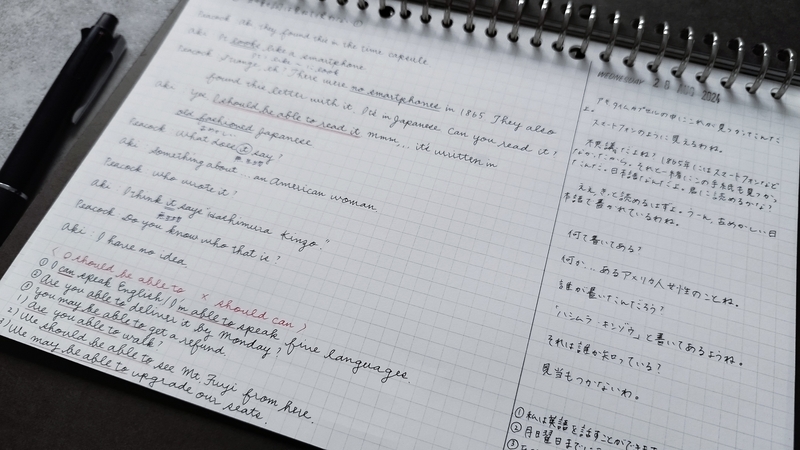 Peacock they found this in the time capsule
Aki It looks like a smartphone.
Peacock Strange, eh? There were no smartphones in 1865. They also
found this letter with it. It's in Japanese. Can you read it?
Aki. You I should be able to read it. mmm... it's written in
old-fashioned Japanese
Peacock What does it say?
Aki something about... an American woman.
Peacock who wrote it?
Aki I think it says "Hashimura Kinzo."
Peacock Do you know who that is?
Aki I have no idea.
(○ should be able to × should can)
① I can speak English / I'm able to speak five languages.
② Are you able to deliver it by Monday?
③ You may be able to get a refund.
1) Are you able to walk?
2) We should be able to see Mt. Fuji from here.
3) We may be able to upgrade our seats.
WEDNESDAY 2024
「タイムカプセルの中にこれが見つかったんだ
スマートフォンのように見えるわね。
不思議だよね？1865年にはスマートフォンなど
なかったから。それと一緒にこの手紙も見つかっ
たんだ。日本語なんだよ。君に読めるかな？
ええ、きっと読めるはずよ。うーん、古めかしい日
本語で書かれているわね。
何て書いてある？
何か…あるアメリカ人女性のことね。
誰が書いたんだろう？
「ハシムラ・キンゾウ」と書いてあるようね。
それは誰か知っている？
見当もつかないわ。
①私は英語を話すことができ
②月曜日までに